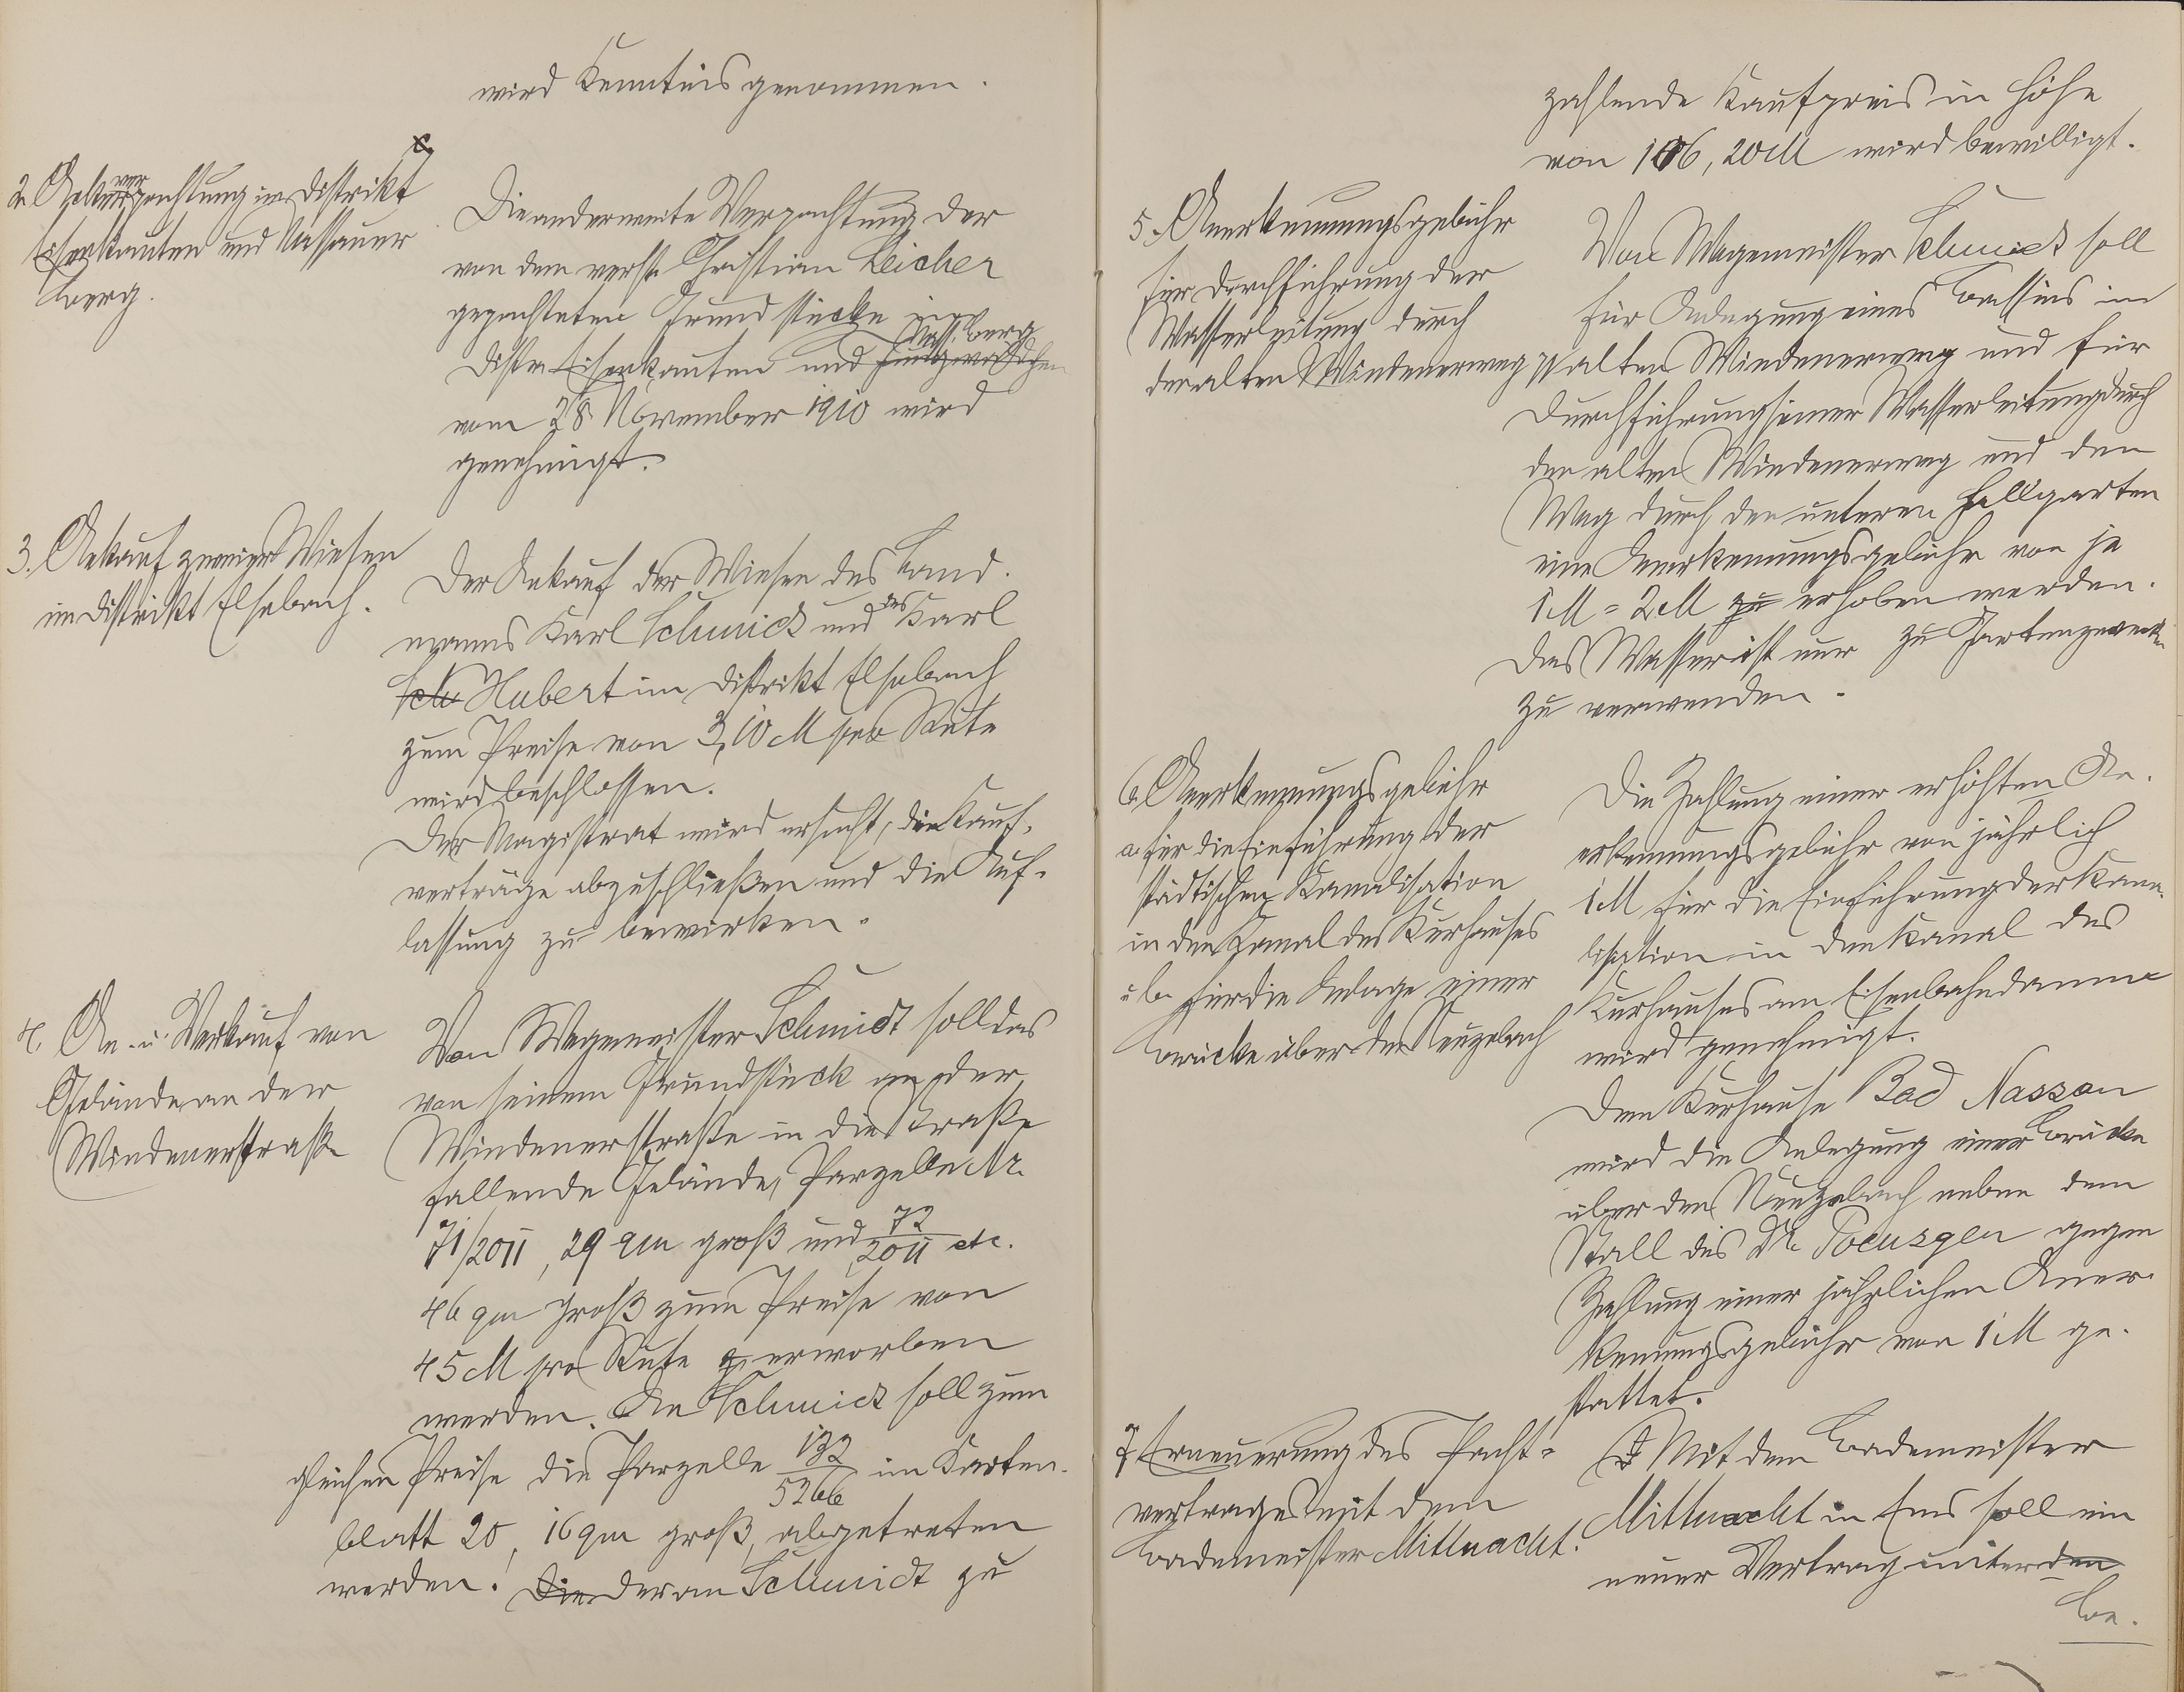 wird Kenntnis genommen.
2. Ackerverpachtung im Distrikt
Eisenkauten und Nassauer
berg.
Die anderweite Verpachtung der
von dem verst. Christian Leicher
gepachteten Grundstücke im
Distr. Eisenkauten und Nass. berg
vom 28. November 1910 wird
genehmigt.
3. Ankauf zweier Wiesen
im Distrikt Elsebach.
Der Ankauf der Wiesen des Land-
manns Karl Schmidt und des Karl
Hubert im Distrikt Elsebach
zum Preise von 3,10 M pro Rute
wird beschlossen.
Der Magistrat wird ersucht, die Kauf-
verträge abzuschließen und die Auf-
lassung zu bewirken.
4. An- u. Verkauf von
Gelände an der
Windenerstraße
Von Wegemeister Schmidt soll das
von seinem Grundstück an der
Windenerstraße in die Straße
fallende Gelände, Parzelle Nr.
71/2011, 29 qm groß und 72/2011 etc.
46 qm groß zum Preise von
45 M pro Rute erworben
werden. An Schmidt soll zum
gleichen Preise die Parzelle 132/5266 im Karten-
blatt 20, 16 qm groß, abgetreten
werden. Die der an Schmidt zu
zahlende Kaufpreis in Höhe
von 106,20 M wird bewilligt.
5. Anerkennungsgebühr
für Durchführung der
Wasserleitung durch
den alten Windenerweg
Von Wegemeister Schmidt soll
für Anlegung eines Bassins im
alten Windenerweg und für
Durchführung seiner Wasserleitung durch
den alten Windenerweg und den
Weg durch den unteren Hallgarten
eine Anerkennungsgebühr von je
1 M = 2 M zu erhoben werden.
Das Wasser ist nur zu Gartenzwecken
zu verwenden.
6. Anerkennungsgebühr
a. für die Einführung der
städtischen Kanalisation
in den Kanal des Kurhauses
u. b. für die Anlage einer
Brücke über den Neuzebach
Die Zahlung einer erhöhten An-
erkennungsgebühr von jährlich
1 M für die Einführung der Kana-
lisation in den Kanal des
Kurhauses am Eisenbahndamme
wird genehmigt.
Dem Kurhause Bad Nassau
wird die Anlegung einer Brücke
über den Neuzebach neben dem
Stall des Dr. Poensgen gegen
Zahlung einer jährlichen Aner-
kennungsgebühr von 1 M ge-
stattet.
7. Erneuerung des Pacht-
vertrages mit dem
Bademeister Mittnacht.
Mit dem Bademeister
Mittnacht in Ems soll ein
neuer Vertrag unter den
be-